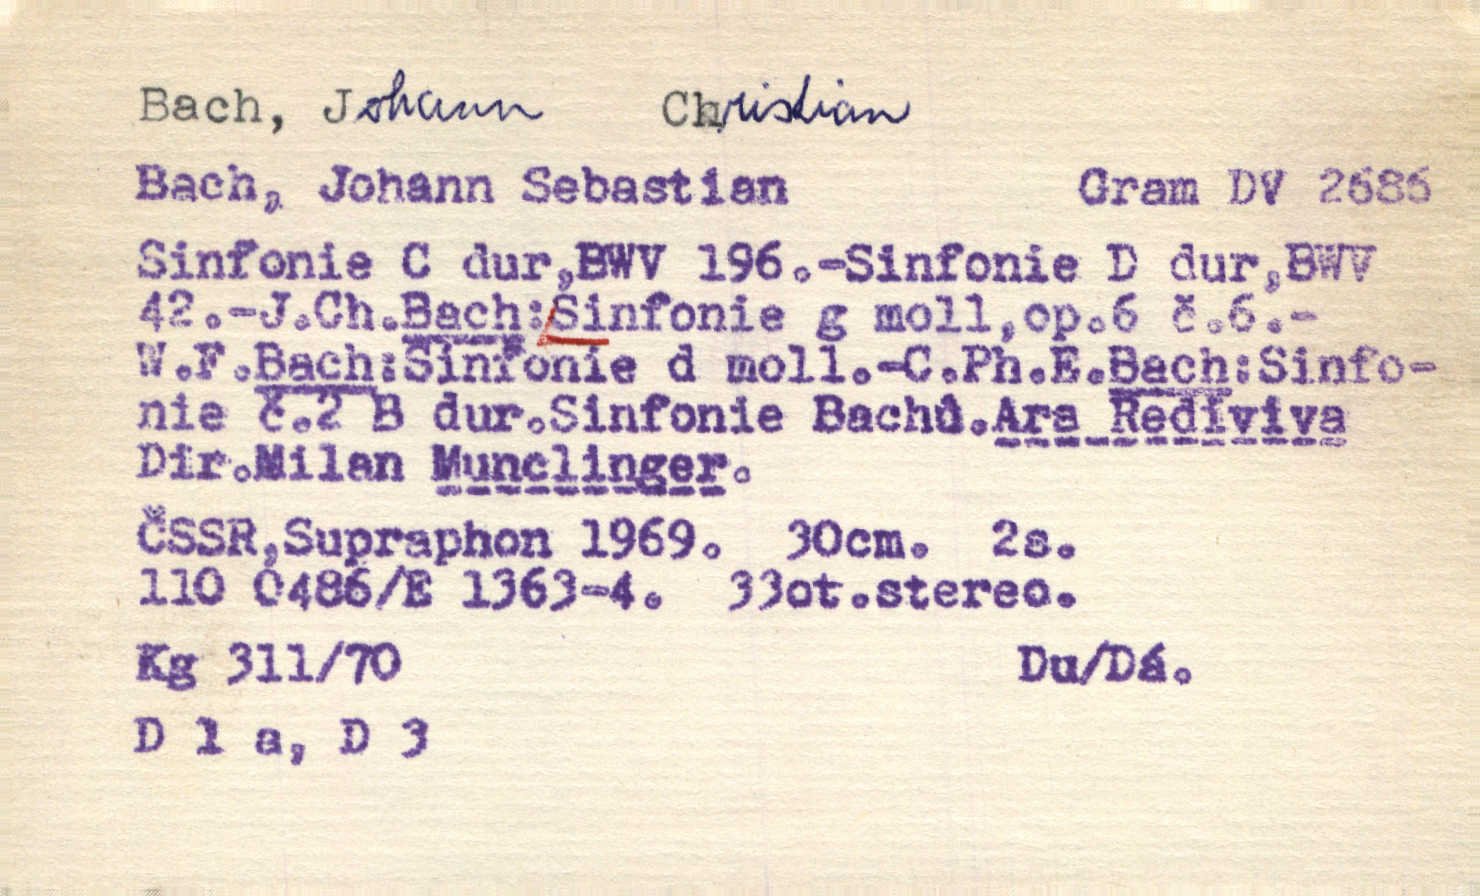 Bach, Johann Christian
Bach, Johann Sebastian Gram DV 2686
Sinfonie C dur,BWV 196.-Sinfonie D dur,BWV
42.-J.Ch.Bach:Sinfonie g moll,op.6 č.6.-
W.F.Bach:Sinfonie d moll.-C.Ph.E.Bach:Sinfo-
nie č.2 B dur.Sinfonie Bachů.Ars Rediviva
Dir.Milan Munclinger.
ČSSR,Supraphon 1969. 30cm. 2s.
110 0486/E 1363-4. 33ot.stereo.
Kg 311/70 Du/Dá.
D 1 a, D 3